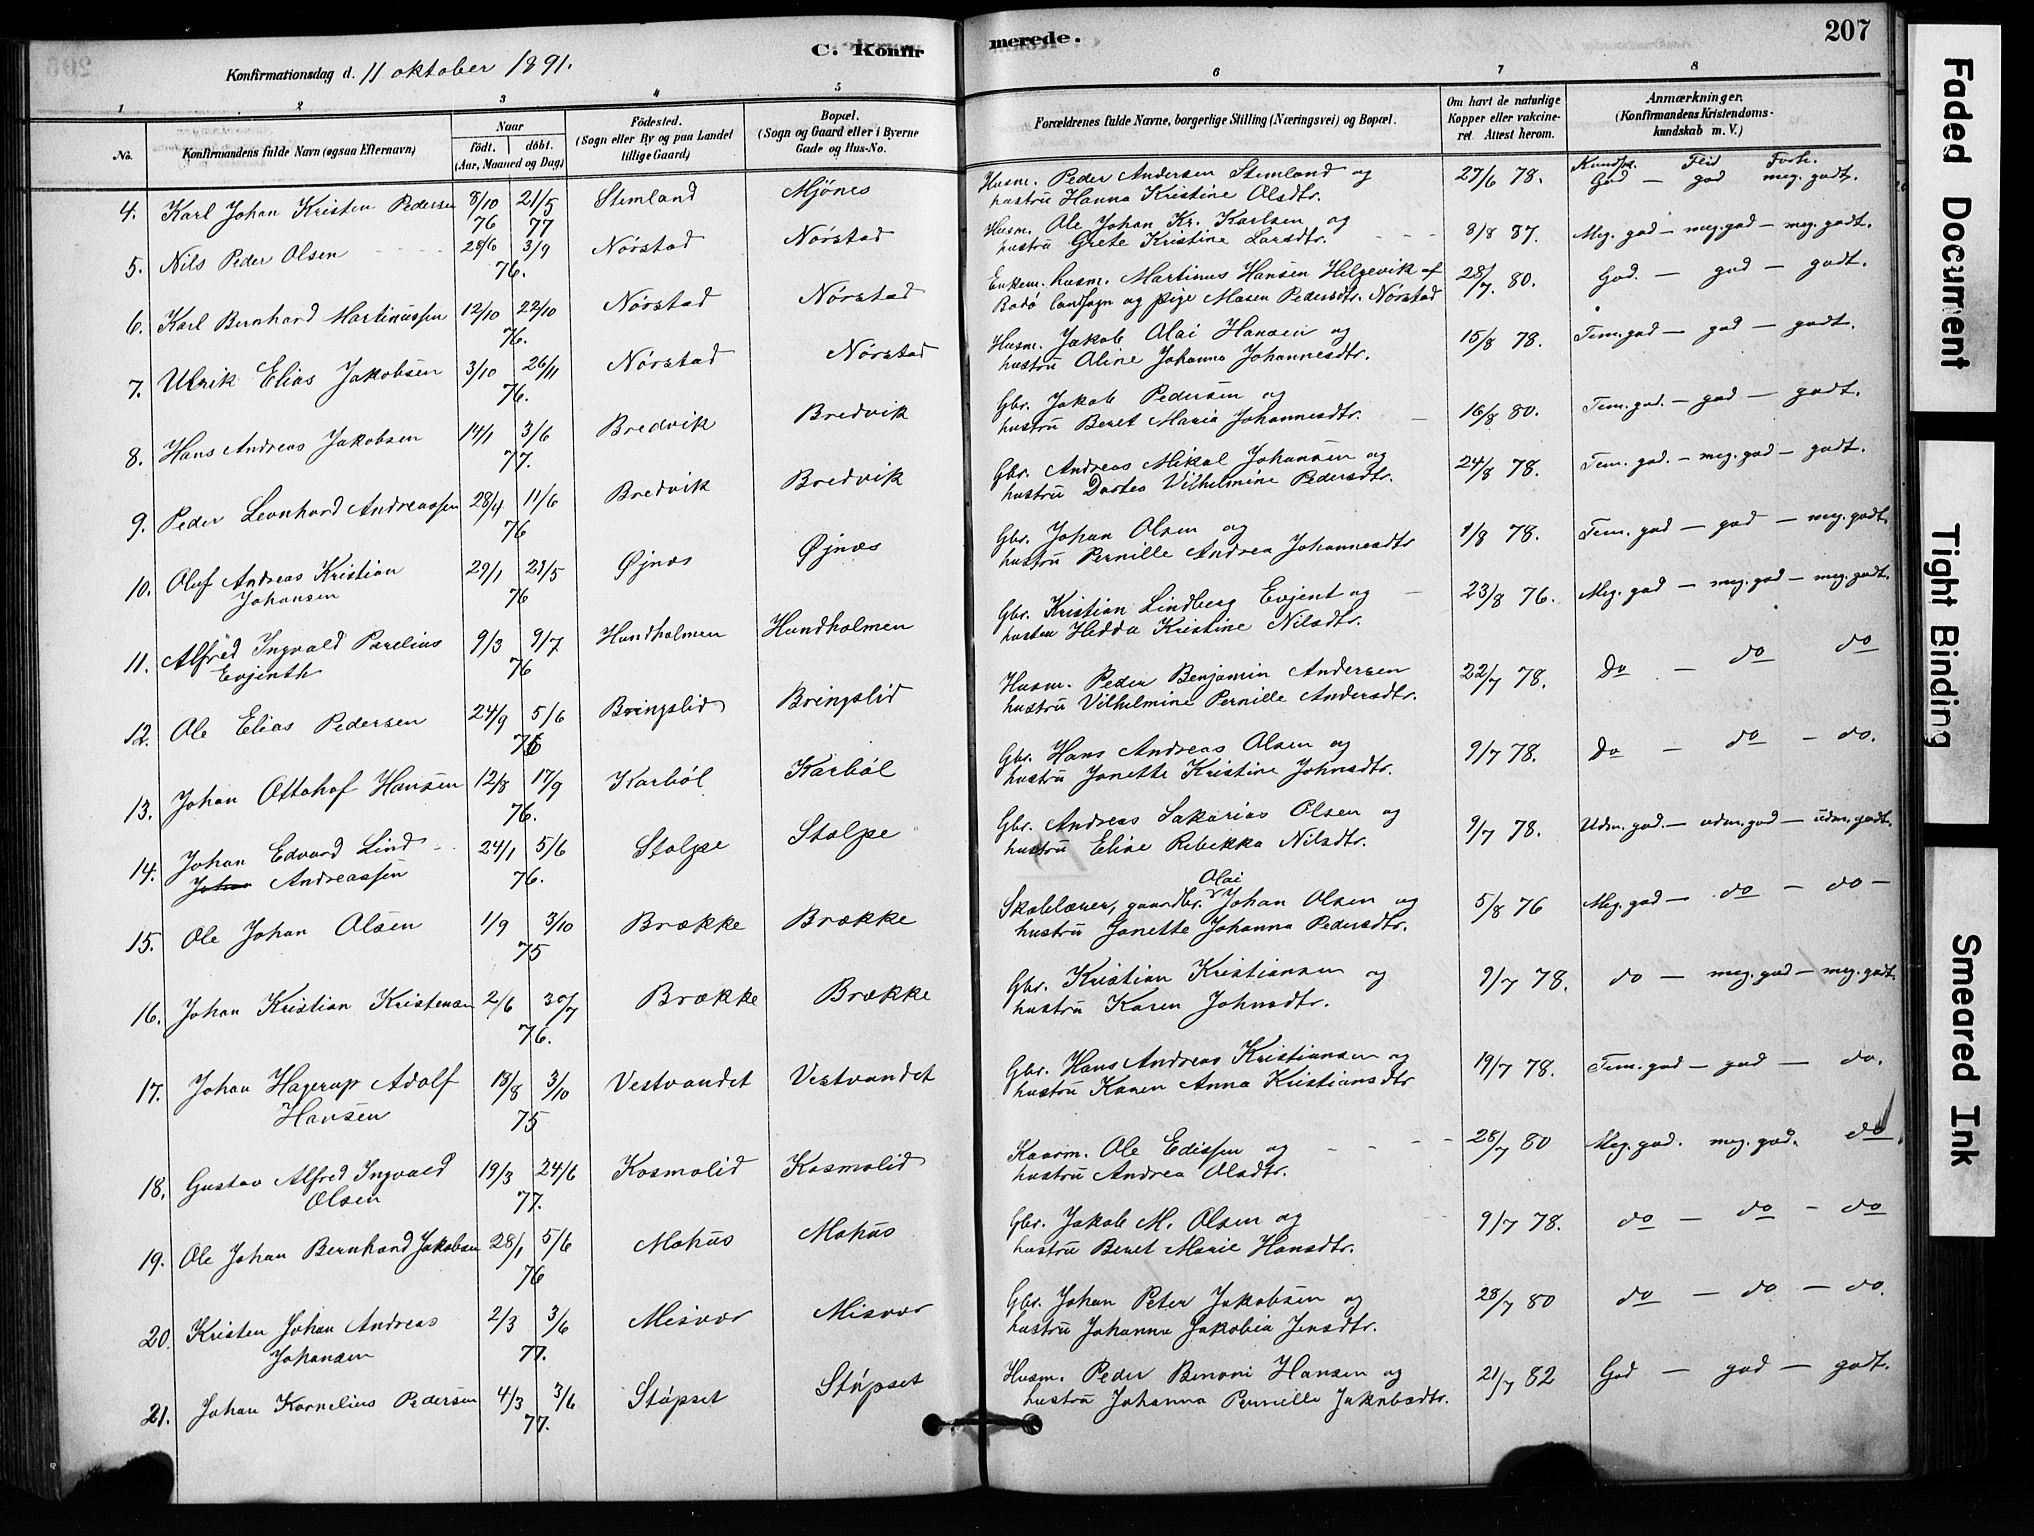 C. Konfirmerede.
207
Konfirmationsdag d. 11 oktober 1891.
1 2 3 4 5 6 7 8
No.
Konfirmandens fulde Navn (ogsaa Efternavn)
Naar
født. døbt.
(Aar, Maaned og Dag)
Fødested.
(Sogn eller By og paa Landet
tillige Gaard)
Bopæl.
(Sogn og Gaard eller i Byerne
Gade og Hus-No.
Forældrenes fulde Navne, borgerlige Stilling (Næringsvei) og Bopæl.
Om havt de naturlige
Kopper eller vakcineret. Attest herom.
Anmærkninger.
(Konfirmandens Kristendomskundskab m. V.)
Kundsk. Flid Forh.
4. Karl Johan Kristen Pedersen 8/10 76 21/5 77 Stemland Mjønes Husm. Peder Andersen Stemland og 27/6 78. God — god meg. godt.
hustru Hanna Kristine Olsdtr.
5. Nils Peder Olsen 28/6 3/9 76. Nørstad Nørstad Husm. Ole Johan Kr. Karlsen og 8/8 87. Meg. god — meg. god — meg. godt.
hustru Grete Kristine Larsdtr.
6. Karl Bernhard Martinussen 12/10 22/10 76. Nørstad Nørstad Enkem. husm. Martinus Hansen Helgevik af 28/7. 80. God. — god — godt.
Bodø landsogn og pige Maren Pedersdtr. Nørstad
7. Ulrik Elias Jakobsen 3/10 26/11 76. Nørstad Nørstad Husm. Jakob Olai Hansen og 15/8 78. Tem. god — god — godt.
hustru Aline Johanna Johannesdtr.
8. Hans Andreas Jakobsen 14/1 3/6 77. Bredvik Bredvik Gbr. Jakob Pedersen og 16/8 80. Tem. god. — god — godt.
hustru Beret Maria Johannesdtr.
9. Peder Leonhard Andreassen 28/4 11/6 76 Bredvik Bredvik Gbr. Andreas Mikal Johansen og 24/8 78. Tem. god. — meg. god — godt.
hustru Dortea Vilhelmine Pedersdtr.
10. Oluf Andreas Kristian 29/1 21/5 76 Øjnes Øjnes Gbr. Johan Olsen og 1/8 78. Tem. god — god — meg. godt.
Johansen hustru Pernille Andrea Johannesdtr
11. Alfred Ingvald Parelius 9/3 9/7 76 Hundholmen Hundholmen Gbr. Kristian Lindberg Evjent og 23/8 76. Meg. god — meg. god — meg. godt.
Evjenth hustru Hedda Kristine Nilsdtr.
12. Ole Elias Pedersen 24/9 5/6 76 Bringslid Bringslid Husm. Peder Benjamin Andersen 22/7 78. Do — do do
hustru Vilhelmine Pernille Andersdtr.
13. Johan Ottohof Hansen 12/8 17/9 76. Karbøl Karbøl Gbr. Hans Andreas Olsen og 9/7 78. Do — do — do.
hustru Janette Kristine Johnsdtr.
14. Johan Edvard Lind 24/1 5/6 76. Stolpe Stolpe Gbr. Andreas Sakarias Olsen og 9/7 78. Udm. god. — udm. god — udm. godt.
Johan Andreassen hustru Eline Rebekka Nilsdtr.
15. Ole Johan Olsen 1/9 3/10 75 Brække Brække Skolelærer, gaardbr. Olai Johan Olsen og 5/8 76 Meg. god — do — do —
hustru Janette Johanna Pedersdtr.
16. Johan Kristian Kristensen 2/6 30/7 76. Brække Brække Gbr. Kristian Kristiansen og 9/7 78. do — meg. god — meg. godt.
hustru Karen Johnsdtr.
17. Johan Hagerup Adolf 18/8 3/10 75 Vestvandet Vestvandet Gbr. Hans Andreas Kristiansen og 19/7 78. Tem. god — god — do.
Hansen hustru Karen Anna Kristiansdtr
18. Gustav Alfred Ingvald 19/3 24/6 77. Kosmolid Kosmolid Kaarm. Ole Edissen og 28/7 80 Meg. god. meg. god. do
Olsen hustru Andrea Olsdtr.
19. Ole Johan Bernhard Jakobsen 28/1 5/6 76 Mohus Mohus Gbr. Jakob M. Olsen og 9/7 78. do — do — do
hustru Beret Marie Hansdtr.
20. Kristen Johan Andreas 2/3 3/6 77. Misvær Misvær Gbr. Johan Peter Jakobsen og 28/7 80 do — do — do.
Johansen hustru Johanna Jakobia Jensdtr.
21. Johan Kornelius Pedersen 4/3 3/6 77. Støpset Støpset Husm. Peder Benoni Hansen og 21/7 82 God — god — godt.
hustru Johanna Pernille Jakobsdtr.
Faded Document
Tight Binding
Smeared Ink